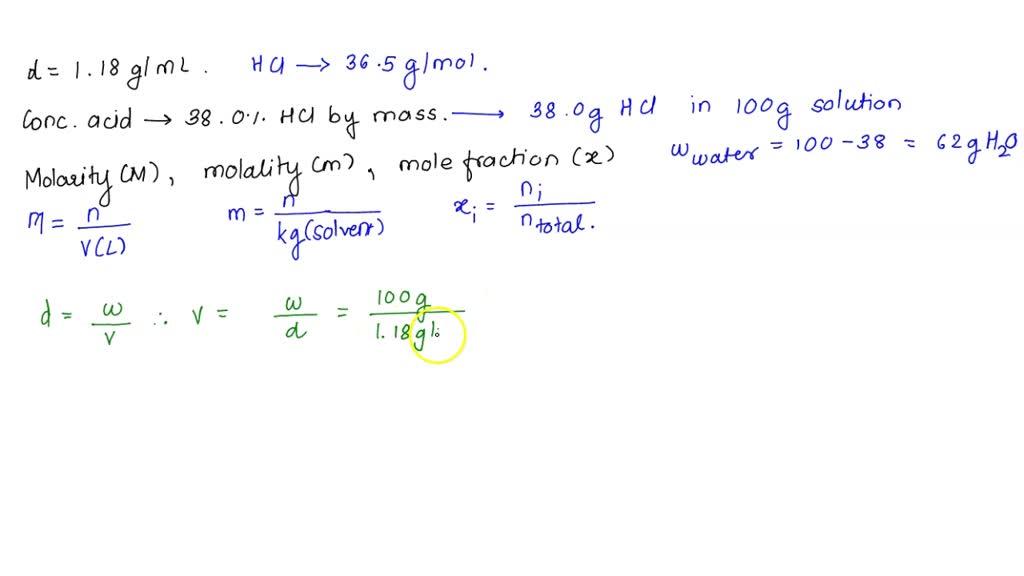 d = 1.18 g/mL. HCl → 36.5 g/mol.
Conc. acid → 38.0% HCl by mass. → 38.0g HCl in 100g solution
Molarity (M), molality (m), mole fraction (x) w water = 100 - 38 = 62g H2O
M = n / V(L) m = n / kg(solvent) xi = ni / n total.
d = w / v ∴ v = w / d = 100g / 1.18 g|